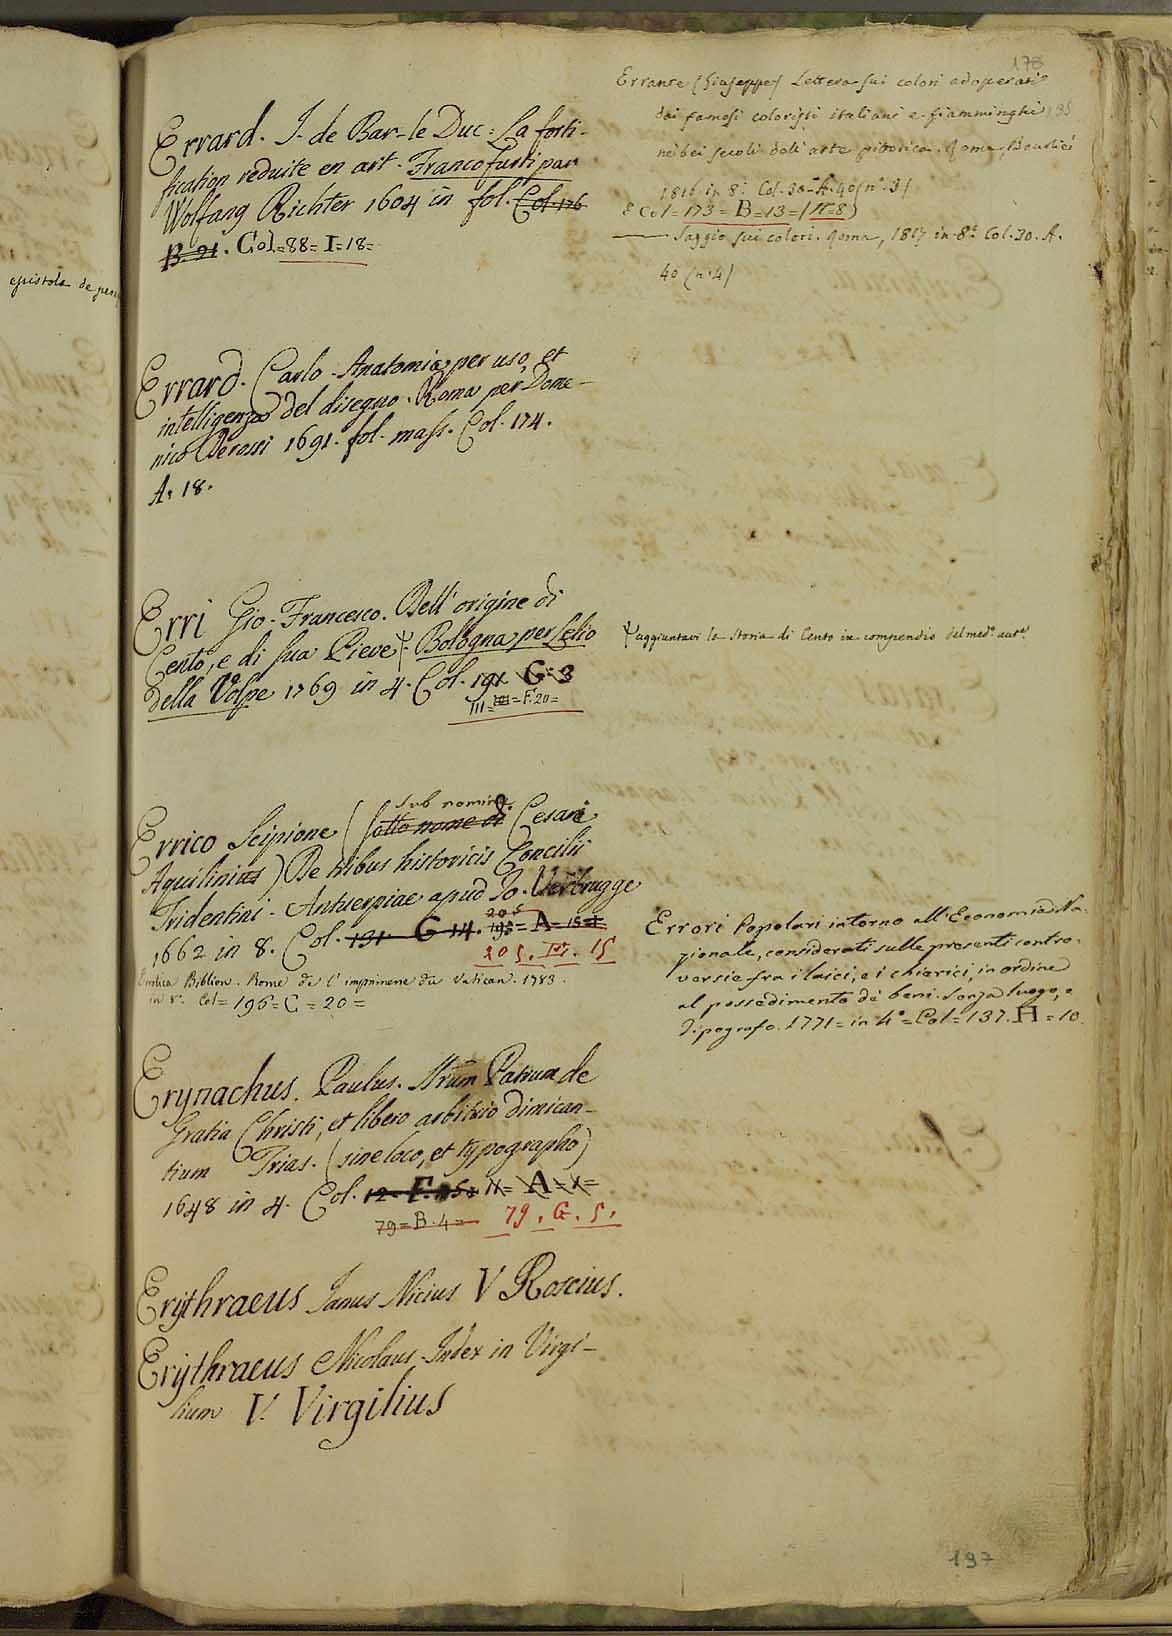 epistola de
178
Errard. I. de Bar-le Duc: La forti-
fication reduite en art. Francofurti par
Wolfang Richter 1604 in fol. Col. 176
B. 21. Col=88=I=18=
Errard. Carlo. Anatomia per uso, et
intelligenza del disegno. Roma per Dome-
nico Derossi 1691. fol. mass. Col. 174.
A. 18.
Erri Gio. Francesco. Dell' origine di
Cento, e di sua Pieve. Bologna per Lelio
della Volpe 1769 in 4. Col. 191 G. 3
111= =F.20=
Errico Scipione (sotto nome di Cesare
sub nomine
Aquilinius) De tribus historicis Concilii
Tridentini. Antuerpiae apud Io. Verbrugge
1662 in 8. Col. 131 G 14. =A=15=
205
205. 15
Biblion. Rome de l'imprimerie du Vatican. 1783.
in 8°. Col=196=C=20=
Erynachus. Paulus. Patrum de
Gratia Christi, et libero arbitrio dimican-
tium Trias. (sine loco, et typographo)
1648 in 4. Col. 12. F. =A=1=
79=B.4= 79. G. 5.
Erythraeus Janus Nicius V Roscius.
Erythraeus Nicolaus Index in Virgi-
lium V. Virgilius
Errante (Giuseppe) Lettera sui colori adoperati
dai famosi coloristi italiani e fiamminghi
nei bei secoli dell'arte pittorica. Roma, Bourlié
1816 in 8°. Col. 30. A. 40 (n° 3)
e Col=173=B=13=(n=8)
Saggio sui colori. Roma, 1817 in 8° Col. 30. A.
40 (n° 4)
aggiuntavi la Storia di Cento in compendio del med.o aut.e
Errori Popolari intorno all'Economia Na-
zionale, considerati sulle presenti contro-
versie fra i laici, e i chierici, in ordine
al possedimento de' beni. Senza luogo, e
Tipografo. 1771= in 4°=Col=137. H=10.
197